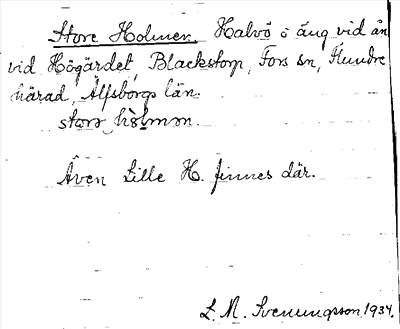 Store Holmen. Halvö o äng vid ån
vid Högärdet, Blackstorp, Fors sn, Flundre
härad, Älfsborgs län.
storə hòlmən.
Även Lille H. finnes där.
L. M. Svenungsson 1934.